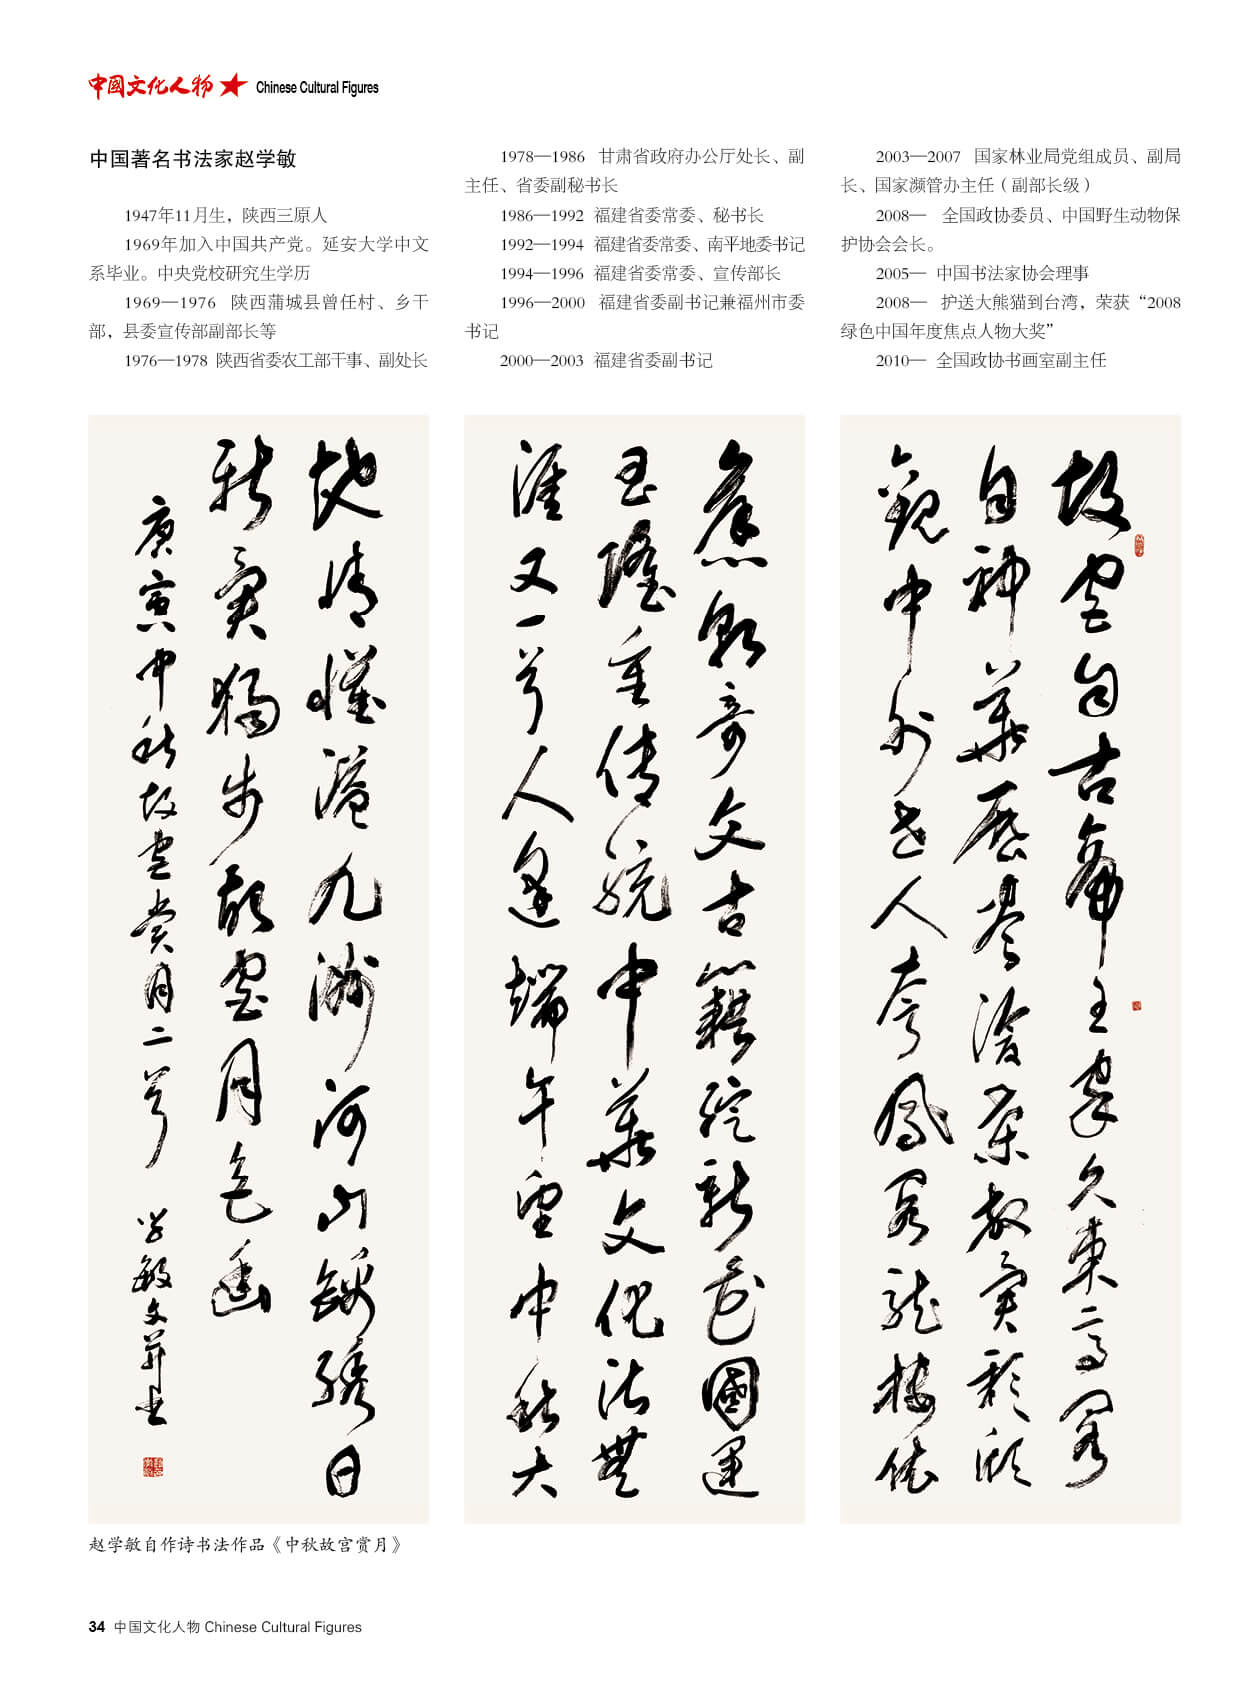 中國文化人物★ Chinese Cultural Figures
中国著名书法家赵学敏
1947年11月生，陕西三原人
1969年加入中国共产党。延安大学中文
系毕业。中央党校研究生学历
1969—1976 陕西蒲城县曾任村、乡干
部，县委宣传部副部长等
1976—1978 陕西省委农工部干事、副处长
1978—1986 甘肃省政府办公厅处长、副
主任、省委副秘书长
1986—1992 福建省委常委、秘书长
1992—1994 福建省委常委、南平地委书记
1994—1996 福建省委常委、宣传部长
1996—2000 福建省委副书记兼福州市委
书记
2000—2003 福建省委副书记
2003—2007 国家林业局党组成员、副局
长、国家濒管办主任（副部长级）
2008— 全国政协委员、中国野生动物保
护协会会长。
2005— 中国书法家协会理事
2008— 护送大熊猫到台湾，荣获“2008
绿色中国年度焦点人物大奖”
2010— 全国政协书画室副主任
故宫自古帝王家久束高阁
自神華
觀中外人夸鳳阁龙楼依
奇文古籍绽新花國運
重传统中華文化浩無
涯又一首人逢端午望中秋大
地情懷溢九洲河山錦繡日
新独步故宫月色幽
庚寅中秋故宫赏月二首 学敏文并书
赵学敏自作诗书法作品《中秋故宫赏月》
34 中国文化人物 Chinese Cultural Figures